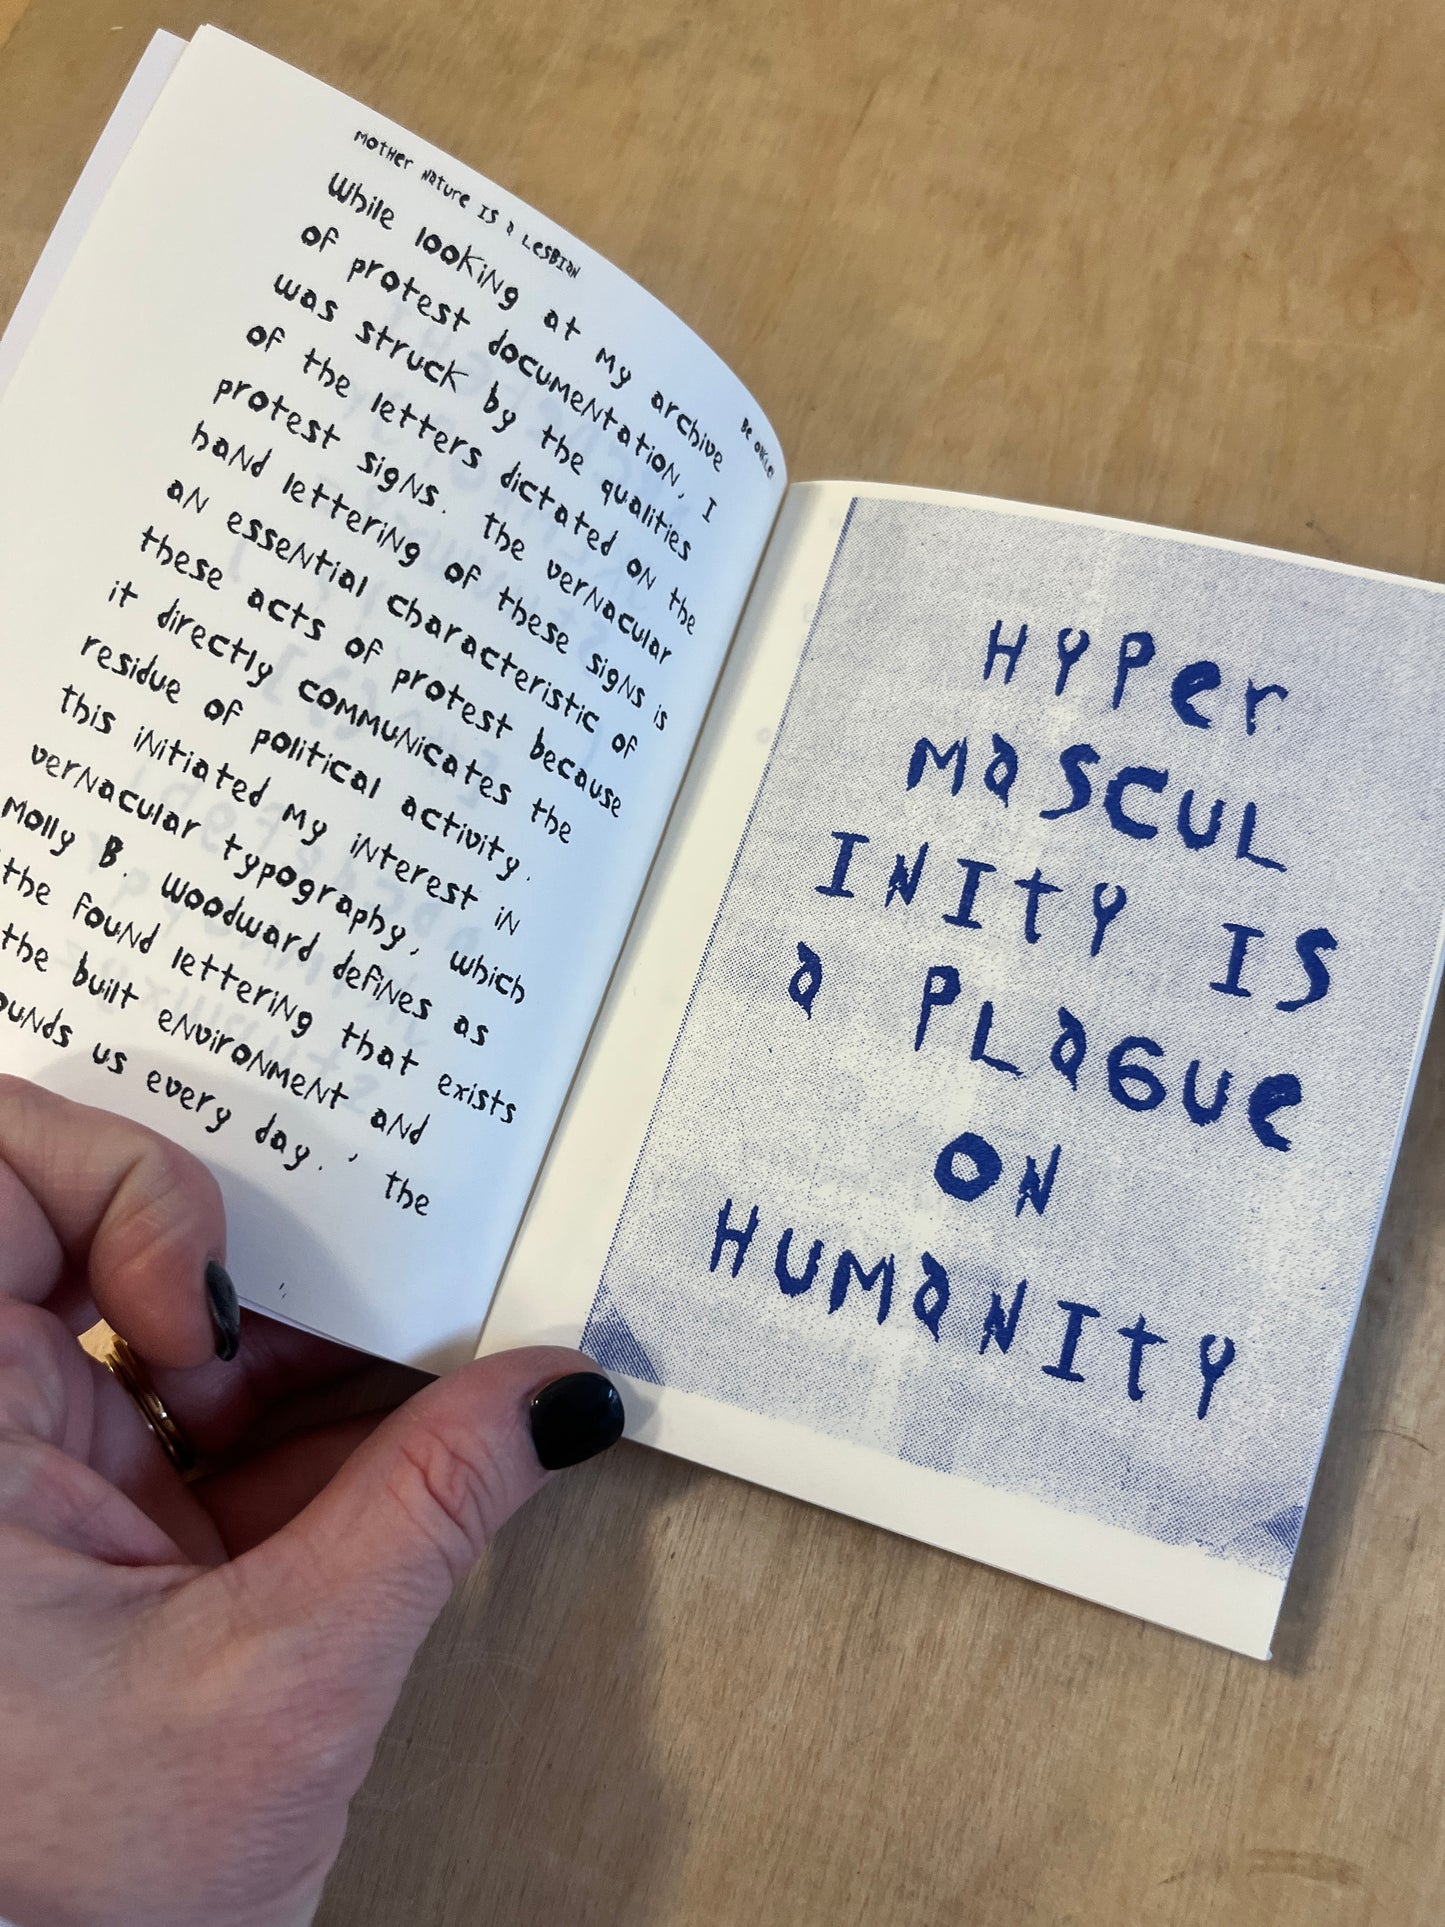 Mother Nature is a Lesbian
While looking at my archive
of protest documentation, I
was struck by the qualities
of the letters dictated on the
protest signs. The vernacular
hand lettering of these signs is
an essential characteristic of
these acts of protest because
it directly communicates the
residue of political activity.
This initiated my interest in
vernacular typography, which
Molly B. Woodward defines as
'the found lettering that exists
the built environment and
ounds us every day.' The
Be Oakle
HYPer
MaSCUL
INITY IS
a PLaGUe
ON
HUMaNITY